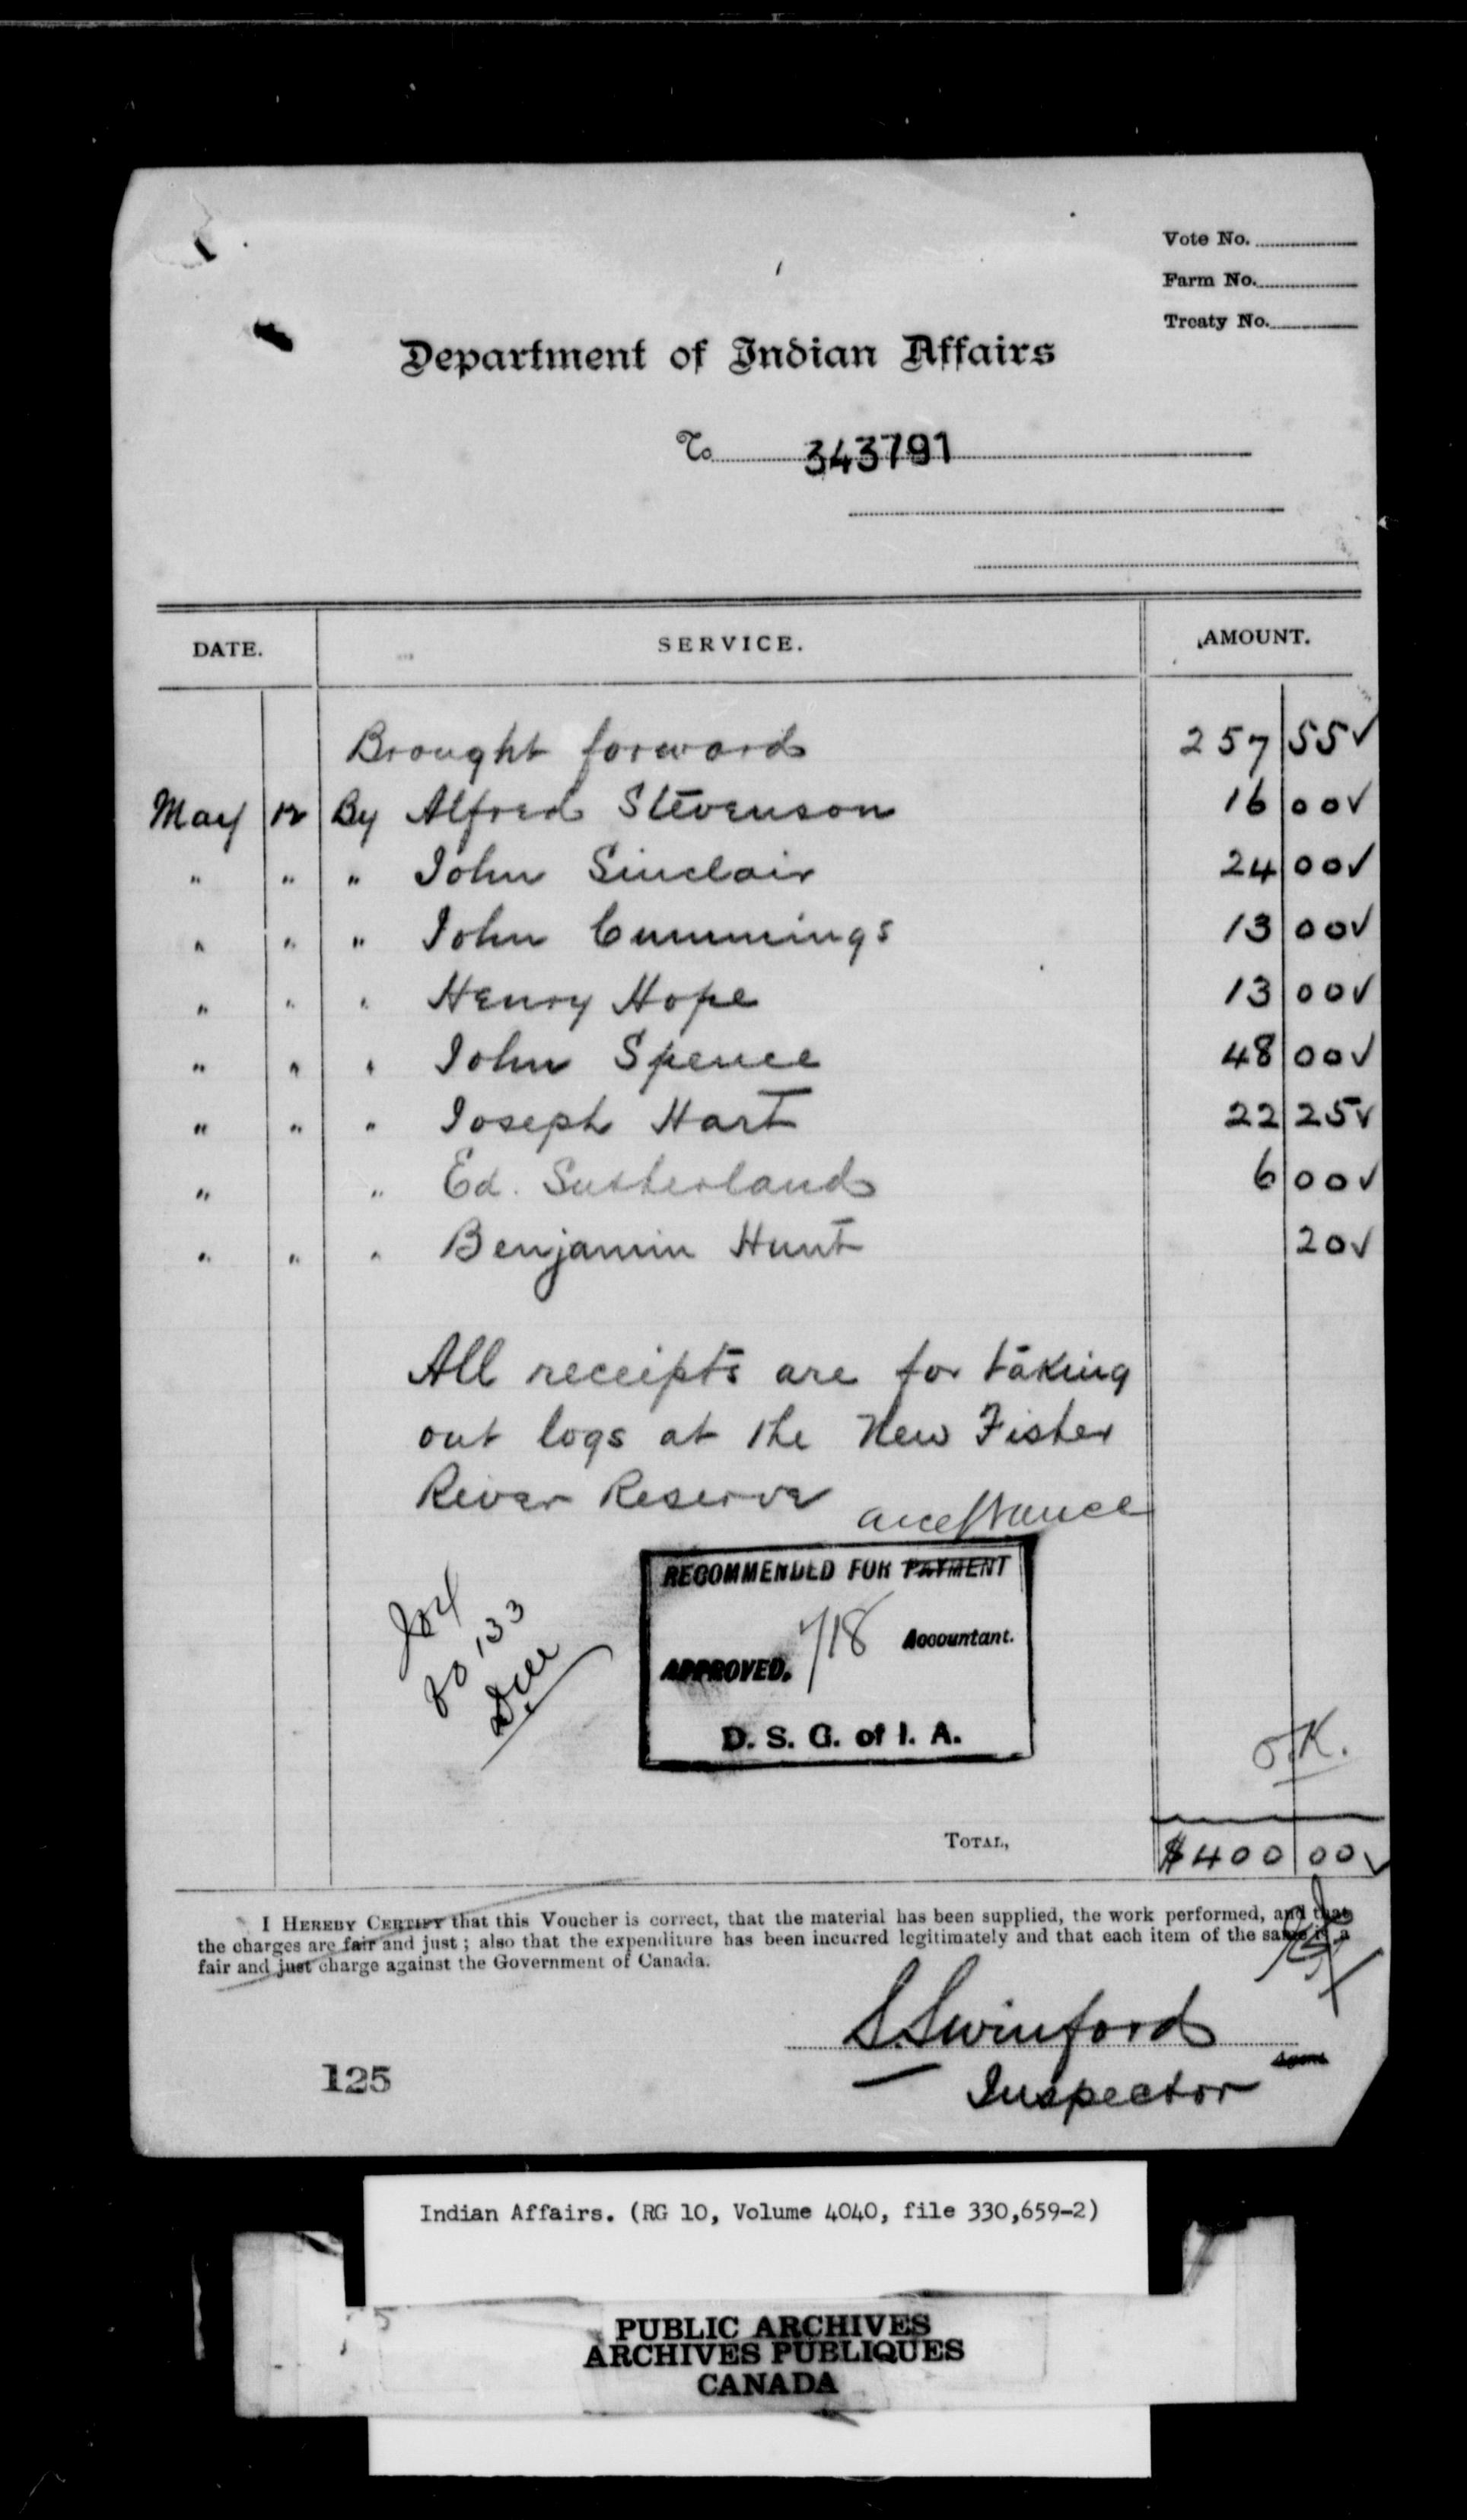 Vote No.
Farm No.
Treaty No.
Department of Indian Affairs
To 343791
DATE. SERVICE. AMOUNT.
Brought forward 257 55 ✓
May 12 By Alfred Stevenson 16 00 ✓
" " " John Sinclair 24 00 ✓
" " " John Cummings 13 00 ✓
" " " Henry Hope 13 00 ✓
" " " John Spence 48 00 ✓
" " " Joseph Hart 22 25 ✓
" " Ed. Sutherland 6 00 ✓
" " " Benjamin Hunt 20 ✓
All receipts are for taking
out logs at the New Fisher
River Reserve
acceptance
RECOMMENDED FOR PAYMENT
718 Accountant.
APPROVED.
D. S. G. of I. A.
O.K.
TOTAL, $400 00 ✓
I HEREBY CERTIFY that this Voucher is correct, that the material has been supplied, the work performed, and that
the charges are fair and just; also that the expenditure has been incurred legitimately and that each item of the same is a
fair and just charge against the Government of Canada.
S. Swinford
Inspector
125
Indian Affairs. (RG 10, Volume 4040, file 330,659-2)
PUBLIC ARCHIVES
ARCHIVES PUBLIQUES
CANADA